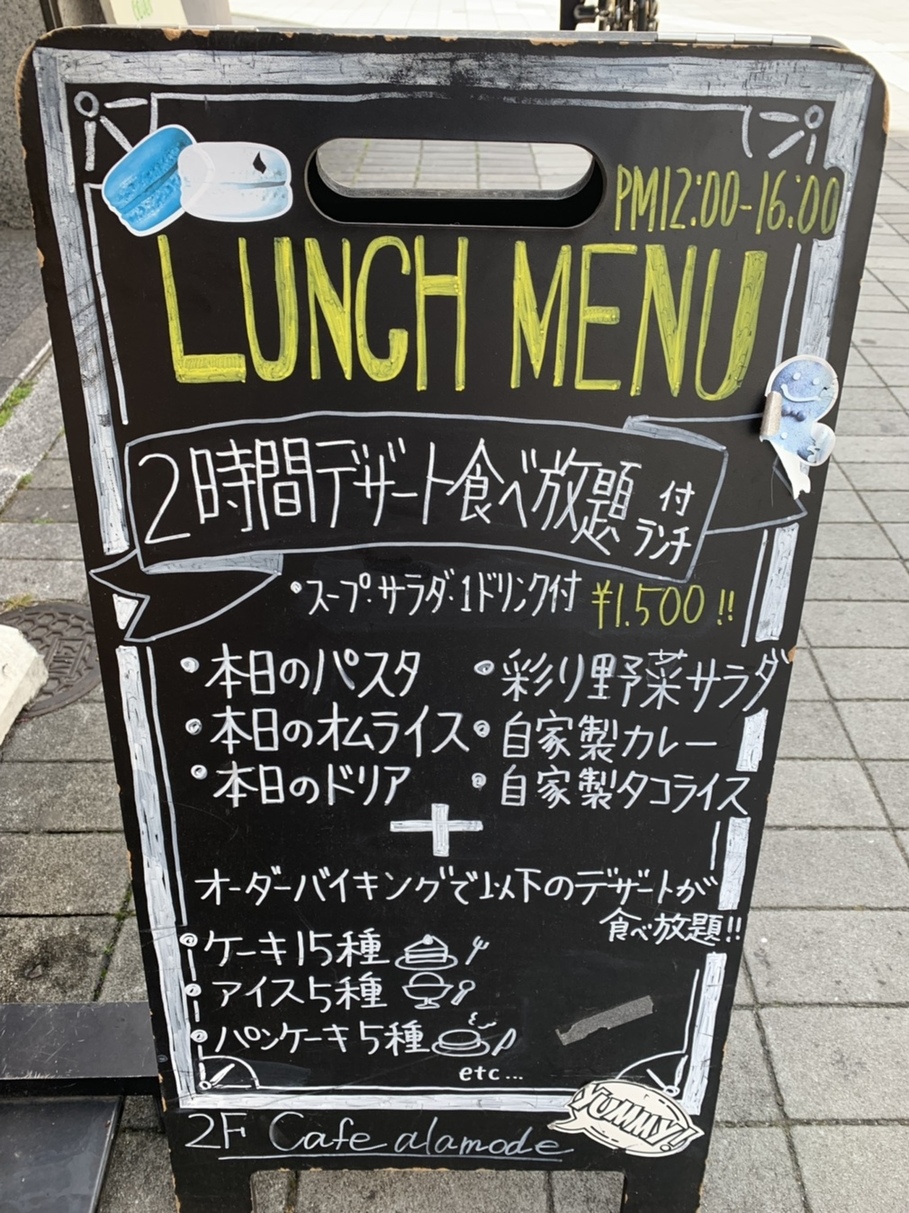 PM12:00-16:00
LUNCH MENU
2時間デザート食べ放題 付ランチ
・スープ・サラダ・1ドリンク付 ¥1,500!!
・本日のパスタ ・彩り野菜サラダ
・本日のオムライス ・自家製カレー
・本日のドリア ・自家製タコライス
+
オーダーバイキングで以下のデザートが
食べ放題!!
・ケーキ15種
・アイス5種
・パンケーキ5種
etc...
YUMMY!
2F Cafe alamode